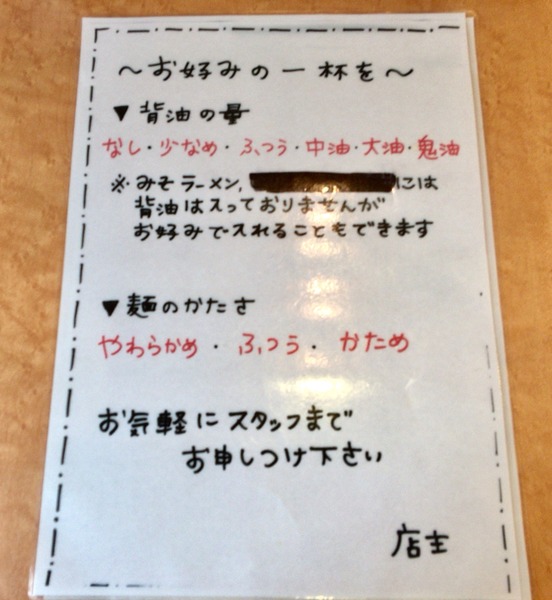 ～お好みの一杯を～
▼背油の量
なし・少なめ・ふつう・中油・大油・鬼油
※みそラーメン、には
背油は入っておりませんが
お好みで入れることもできます
▼麺のかたさ
やわらかめ・ふつう・かため
お気軽にスタッフまで
お申しつけ下さい
店主